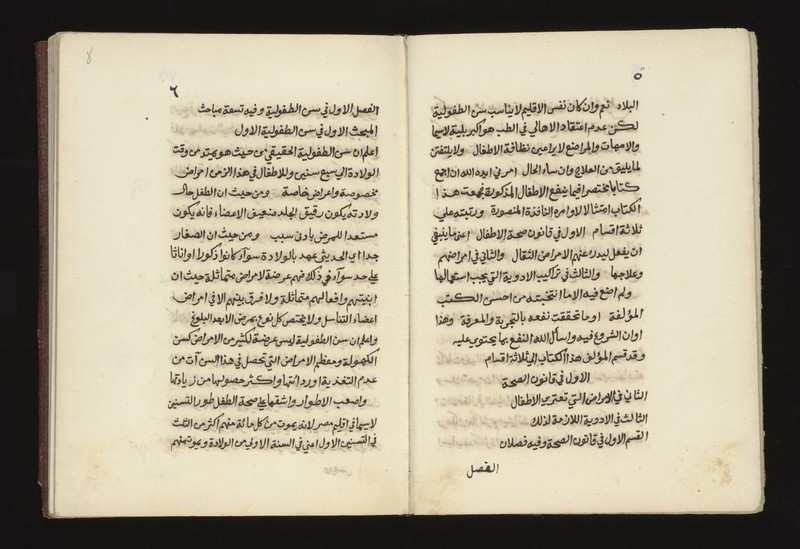 ٥
البلاد نعم وان كان نفس الاقليم لا يناسب سن الطفولية
لكن عدم اعتقاد الاهالي في الطب هو اكبر بلية لاسيما
والامهات والمراضع لا يراعين نظافة الاطفال ولا يلتفتن
لما يليق من العلاج وان ساء الحال امرني ايده الله ان اجمع
كتابا مختصرا فيما ينفع الاطفال المذكورة فجمعت هذا
الكتاب امتثالا لاوامره النافذة المنصورة ورتبته علي
ثلاثة اقسام الاول في قانون صحة الاطفال اعني ما ينبغي
ان يفعل ليدرء عنهم الامراض الثقال والثاني في امراضهم
وعلاجها والثالث في تراكيب الادوية التي يجب استعمالها
ولم اضع فيه الا ما انتخبته من احسن الكتب
المؤلفة او ما تحققت نفعه بالتجربة والمعرفة وهذا
اوان الشروع فيه واسأل الله النفع بما يحتوي عليه
وقد قسم المؤلف هذا الكتاب الي ثلاثة اقسام
الاول في قانون الصحة
الثاني في الامراض التي تعتري الاطفال
الثالث في الادوية اللازمة لذلك
القسم الاول في قانون الصحة وفيه فصلان
الفصل
8
٦
الفصل الاول في سن الطفولية وفيه تسعة مباحث
المبحث الاول في سن الطفولية الاول
اعلم ان سن الطفولية الحقيقي من حيث هو يمتد من وقت
الولادة الي سبع سنين وللاطفال في هذا الزمن امراض
مخصوصة واعراض خاصة ومن حيث ان الطفل حال
ولادته يكون رقيق الجلد ضعيف الاعضاء فانه يكون
مستعدا للمرض بادني سبب ومن حيث ان الصغار
جدا اي الحديثي عهد بالولادة سوآء كانوا ذكورا او اناثا
علي حد سوآء في ذلك فهم عرضة لامراض متماثلة حيث ان
ابنيتهم وافعالهم متماثلة ولا فرق بينهم الا في امراض
اعضاء التناسل ولا يختص كل نوع بمرض الا بعد البلوغ
واعلم ان سن الطفولية ليس عرضة لكثير من الامراض كسن
الكهولة ومعظم الامراض التي تحصل في هذا السن آت من
عدم التغذية او ردائتها واكثر حصولها من زيادتها
واصعب الاطوار واشقها علي صحة الطفل طور التسنين
لاسيما في اقليم مصر لانه يموت من كل مائة منهم اكثر من الثلث
في التسنين الاول اعني في السنة الاولي من الولادة ويموت منهم